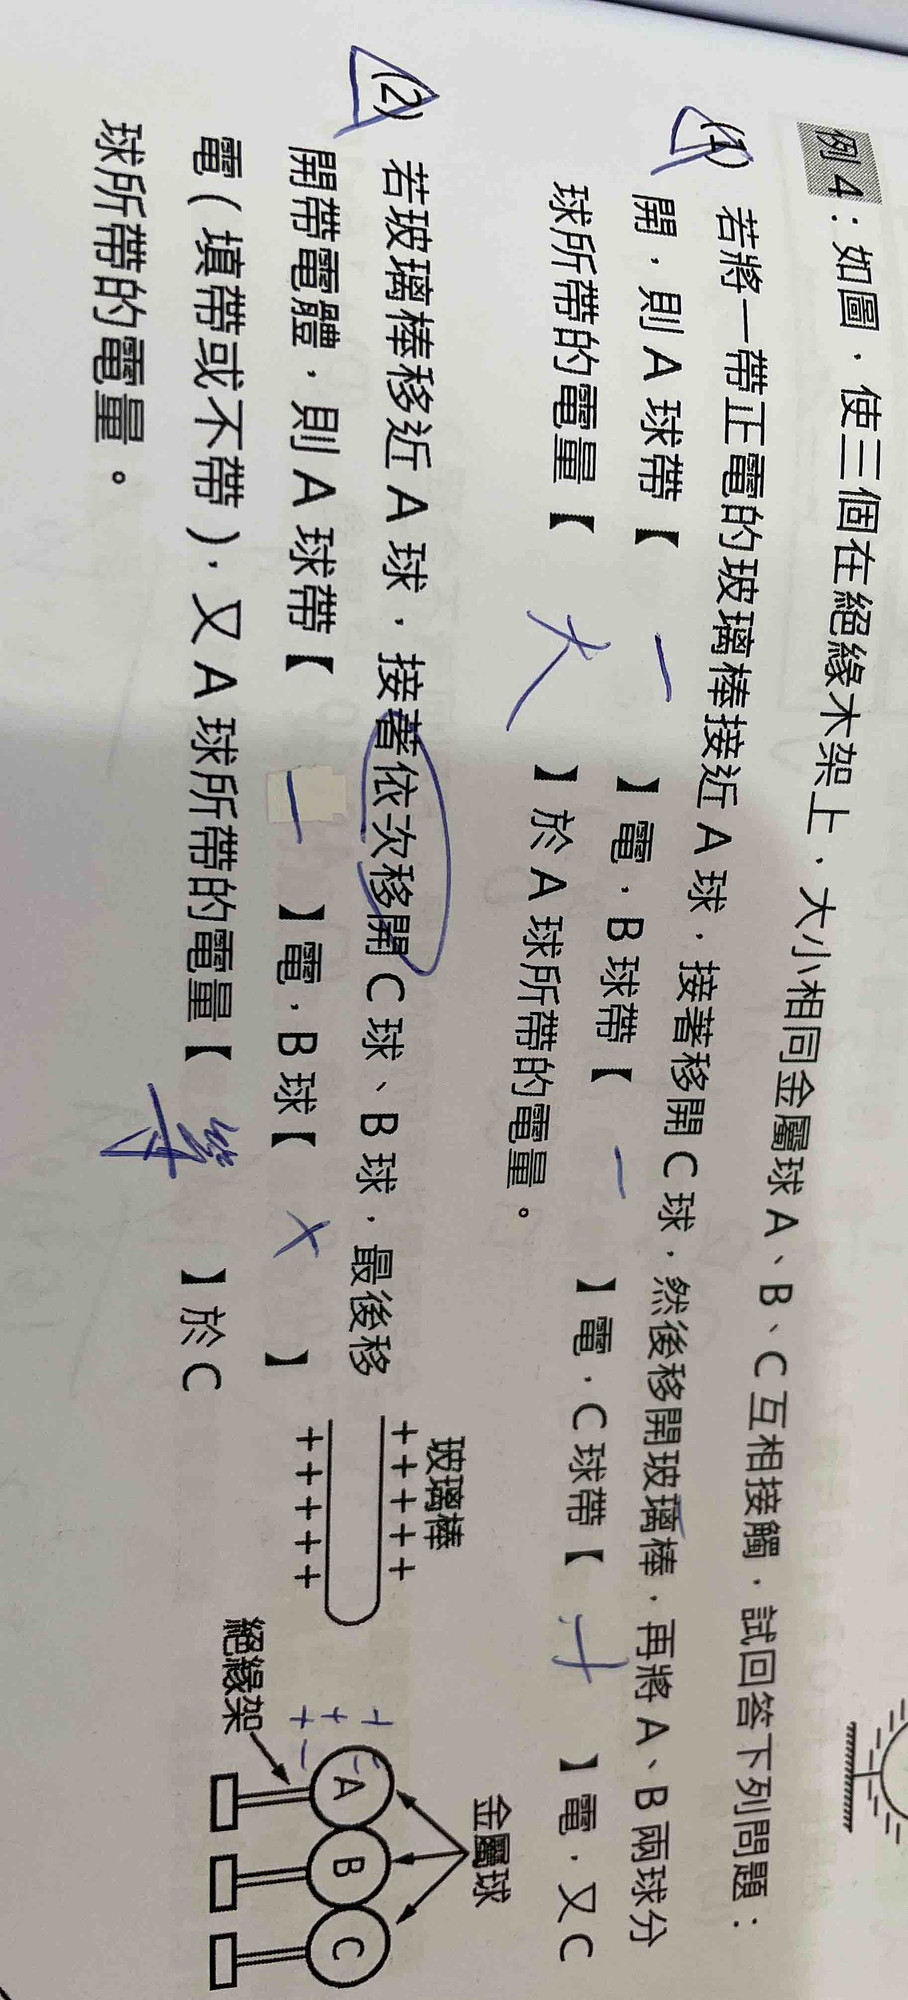 例4：如圖，使三個在絕緣木架上，大小相同金屬球A、B、C互相接觸，試回答下列問題：
(1) 若將一帶正電的玻璃棒接近A球，接著移開C球，然後移開玻璃棒，再將A、B兩球分
開，則A球帶【 － 】電，B球帶【 － 】電，C球帶【 ＋ 】電，又C
球所帶的電量【 大 】於A球所帶的電量。
(2) 若玻璃棒移近A球，接著依次移開C球、B球，最後移
開帶電體，則A球帶【 － 】電，B球【 × 】
電（填帶或不帶），又A球所帶的電量【 等 】於C
球所帶的電量。
玻璃棒
+++++
+++++
金屬球
絕緣架
A B C